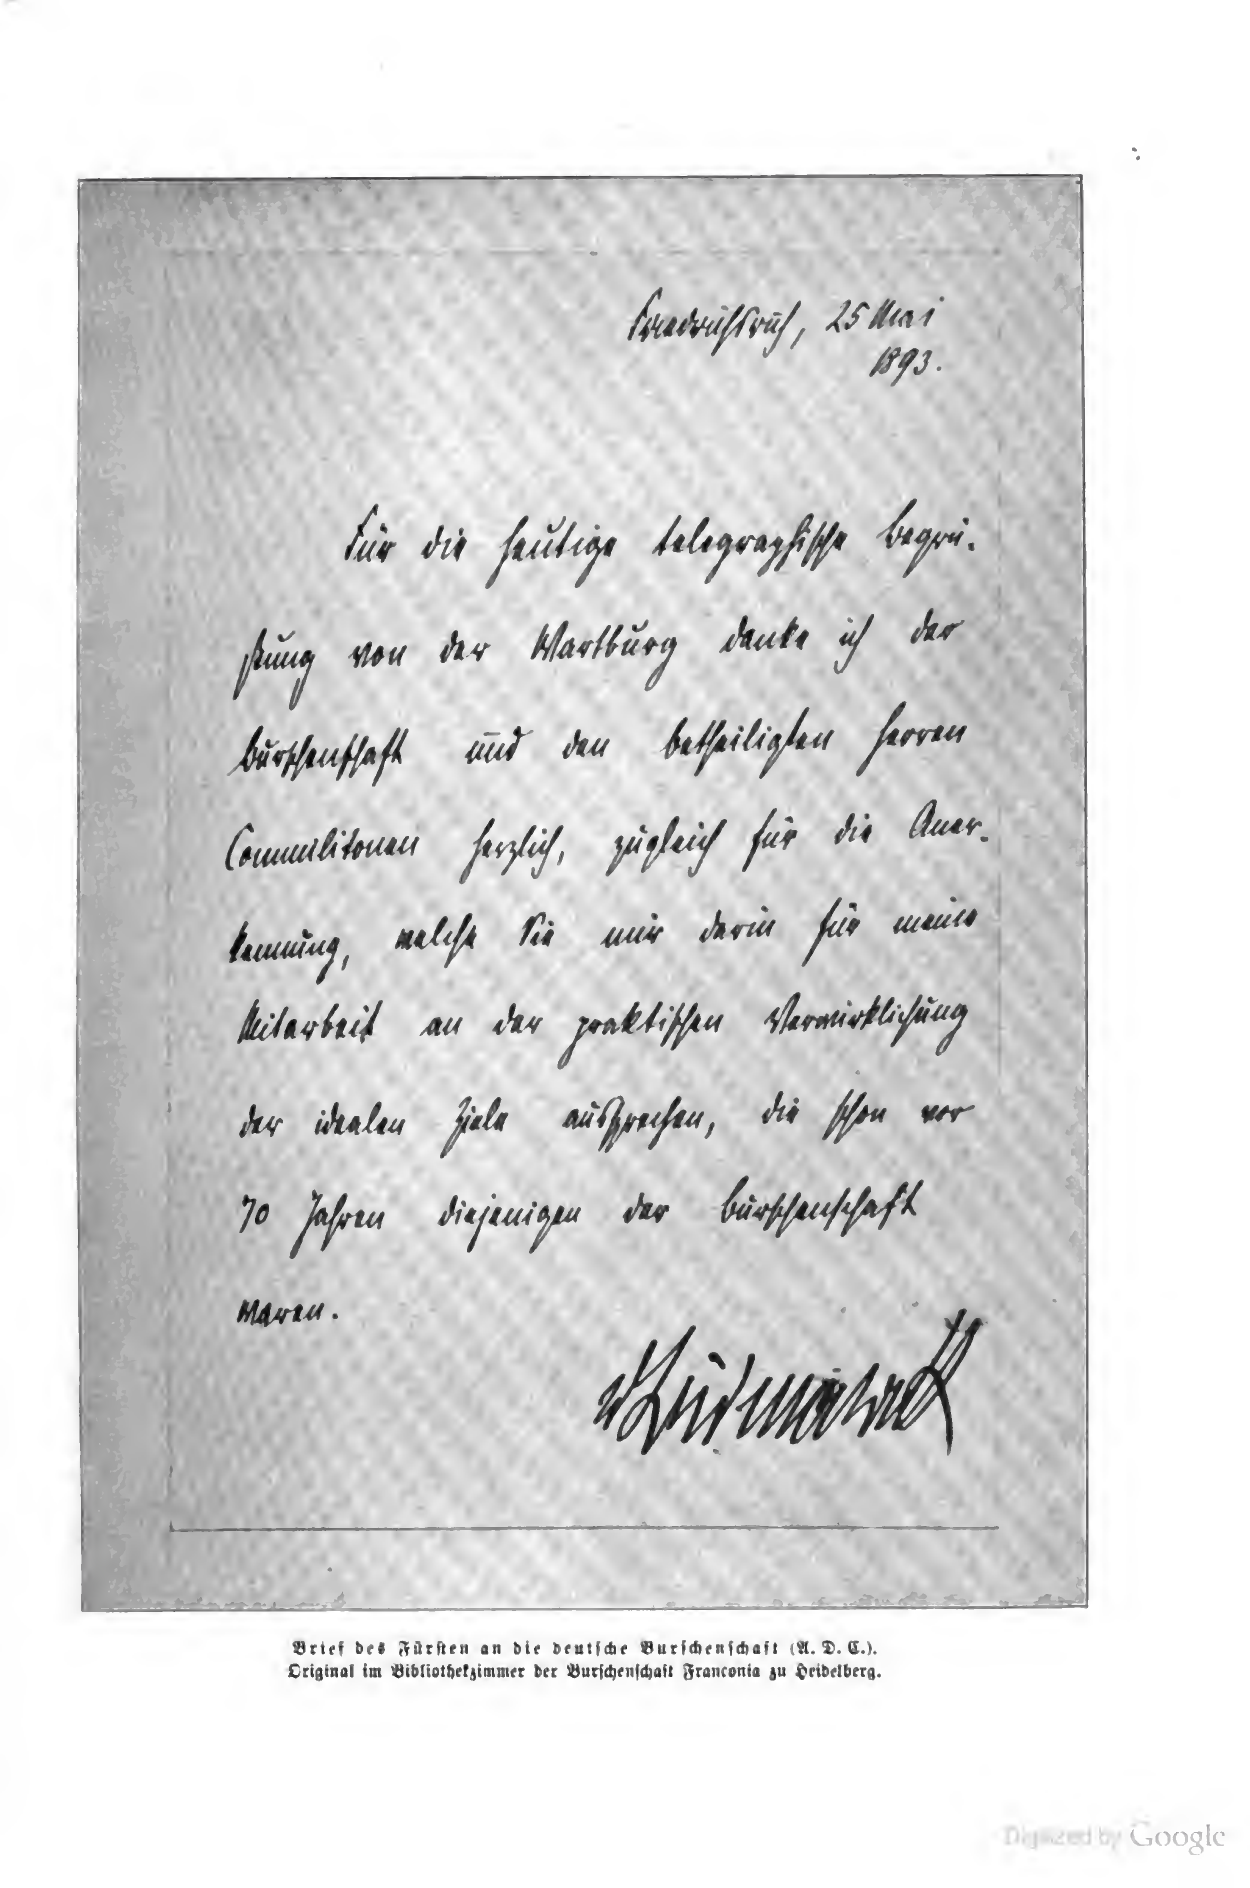 Friedrichsruh, 25 Mai
1893.
Für die heutige telegraphische Begrü-
ßung von der Wartburg danke ich der
Burschenschaft und den betheiligten Herren
Commilitonen herzlich, zugleich für die Aner-
kennung, welche Sie mir darin für meine
Mitarbeit an der praktischen Verwirklichung
der idealen Ziele aussprechen, die schon vor
70 Jahren diejenigen der Burschenschaft
waren.
v Bismarck
Brief des Fürsten an die deutsche Burschenschaft (A. D. C.).
Original im Bibliothekzimmer der Burschenschaft Franconia zu Heidelberg.
Digitized by Google